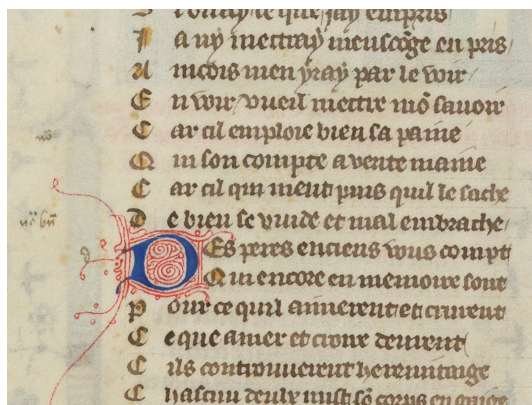 J a ny mettray mensoge en pris
A incois men yray par le voir
E n voir vueil mettre mō sauoir
C ar cil emploie bien sa paine
Q ui son compte a verite maine
C ar cil qui ment puis quil le sache
D e bien se vuide et mal embrache
D Es peres anciens vous compt
Q ui encore en memoire sont
P our ce quil amerent et crurent
C e que amer et croire deurent
C ils controuuerent hermitaige
C hascun deulx mist sō corps en